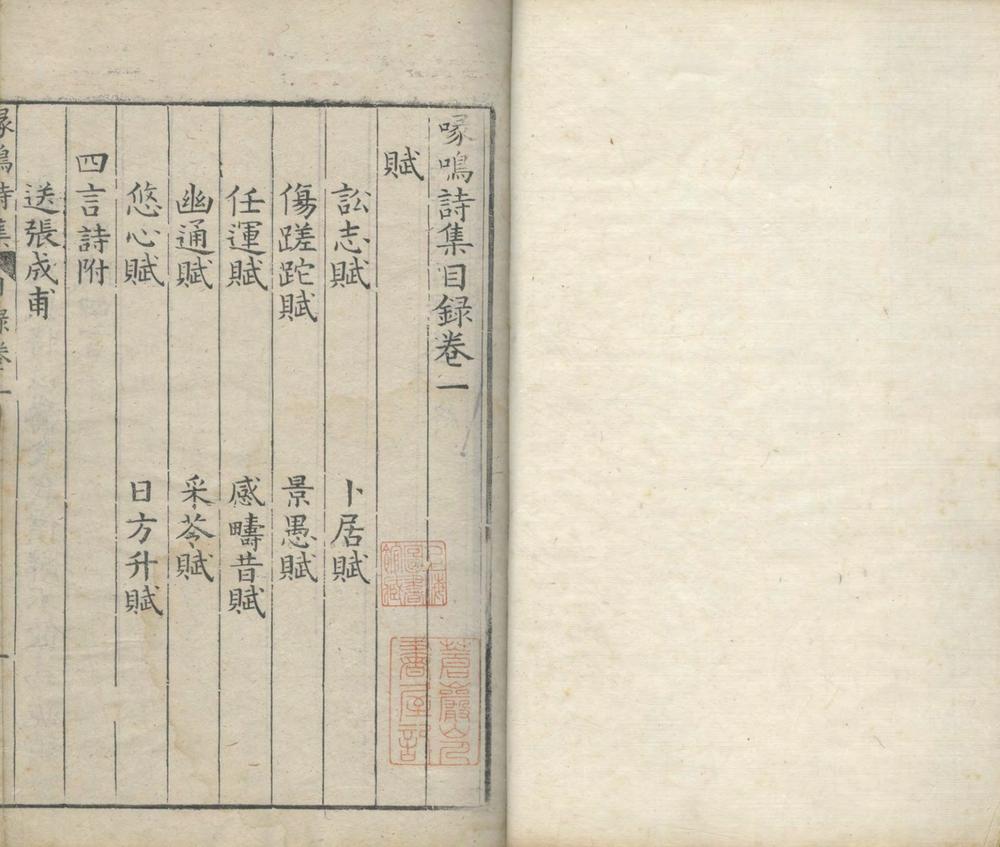 喙鳴詩集目録卷一
賦
訟志賦　卜居賦
傷蹉跎賦　景愚賦
任運賦　感疇昔賦
幽通賦　采苓賦
悠心賦　日方升賦
四言詩附
送張成甫
喙鳴詩集　目録卷一　一
上海圖書館藏
蒼巖山人書屋記